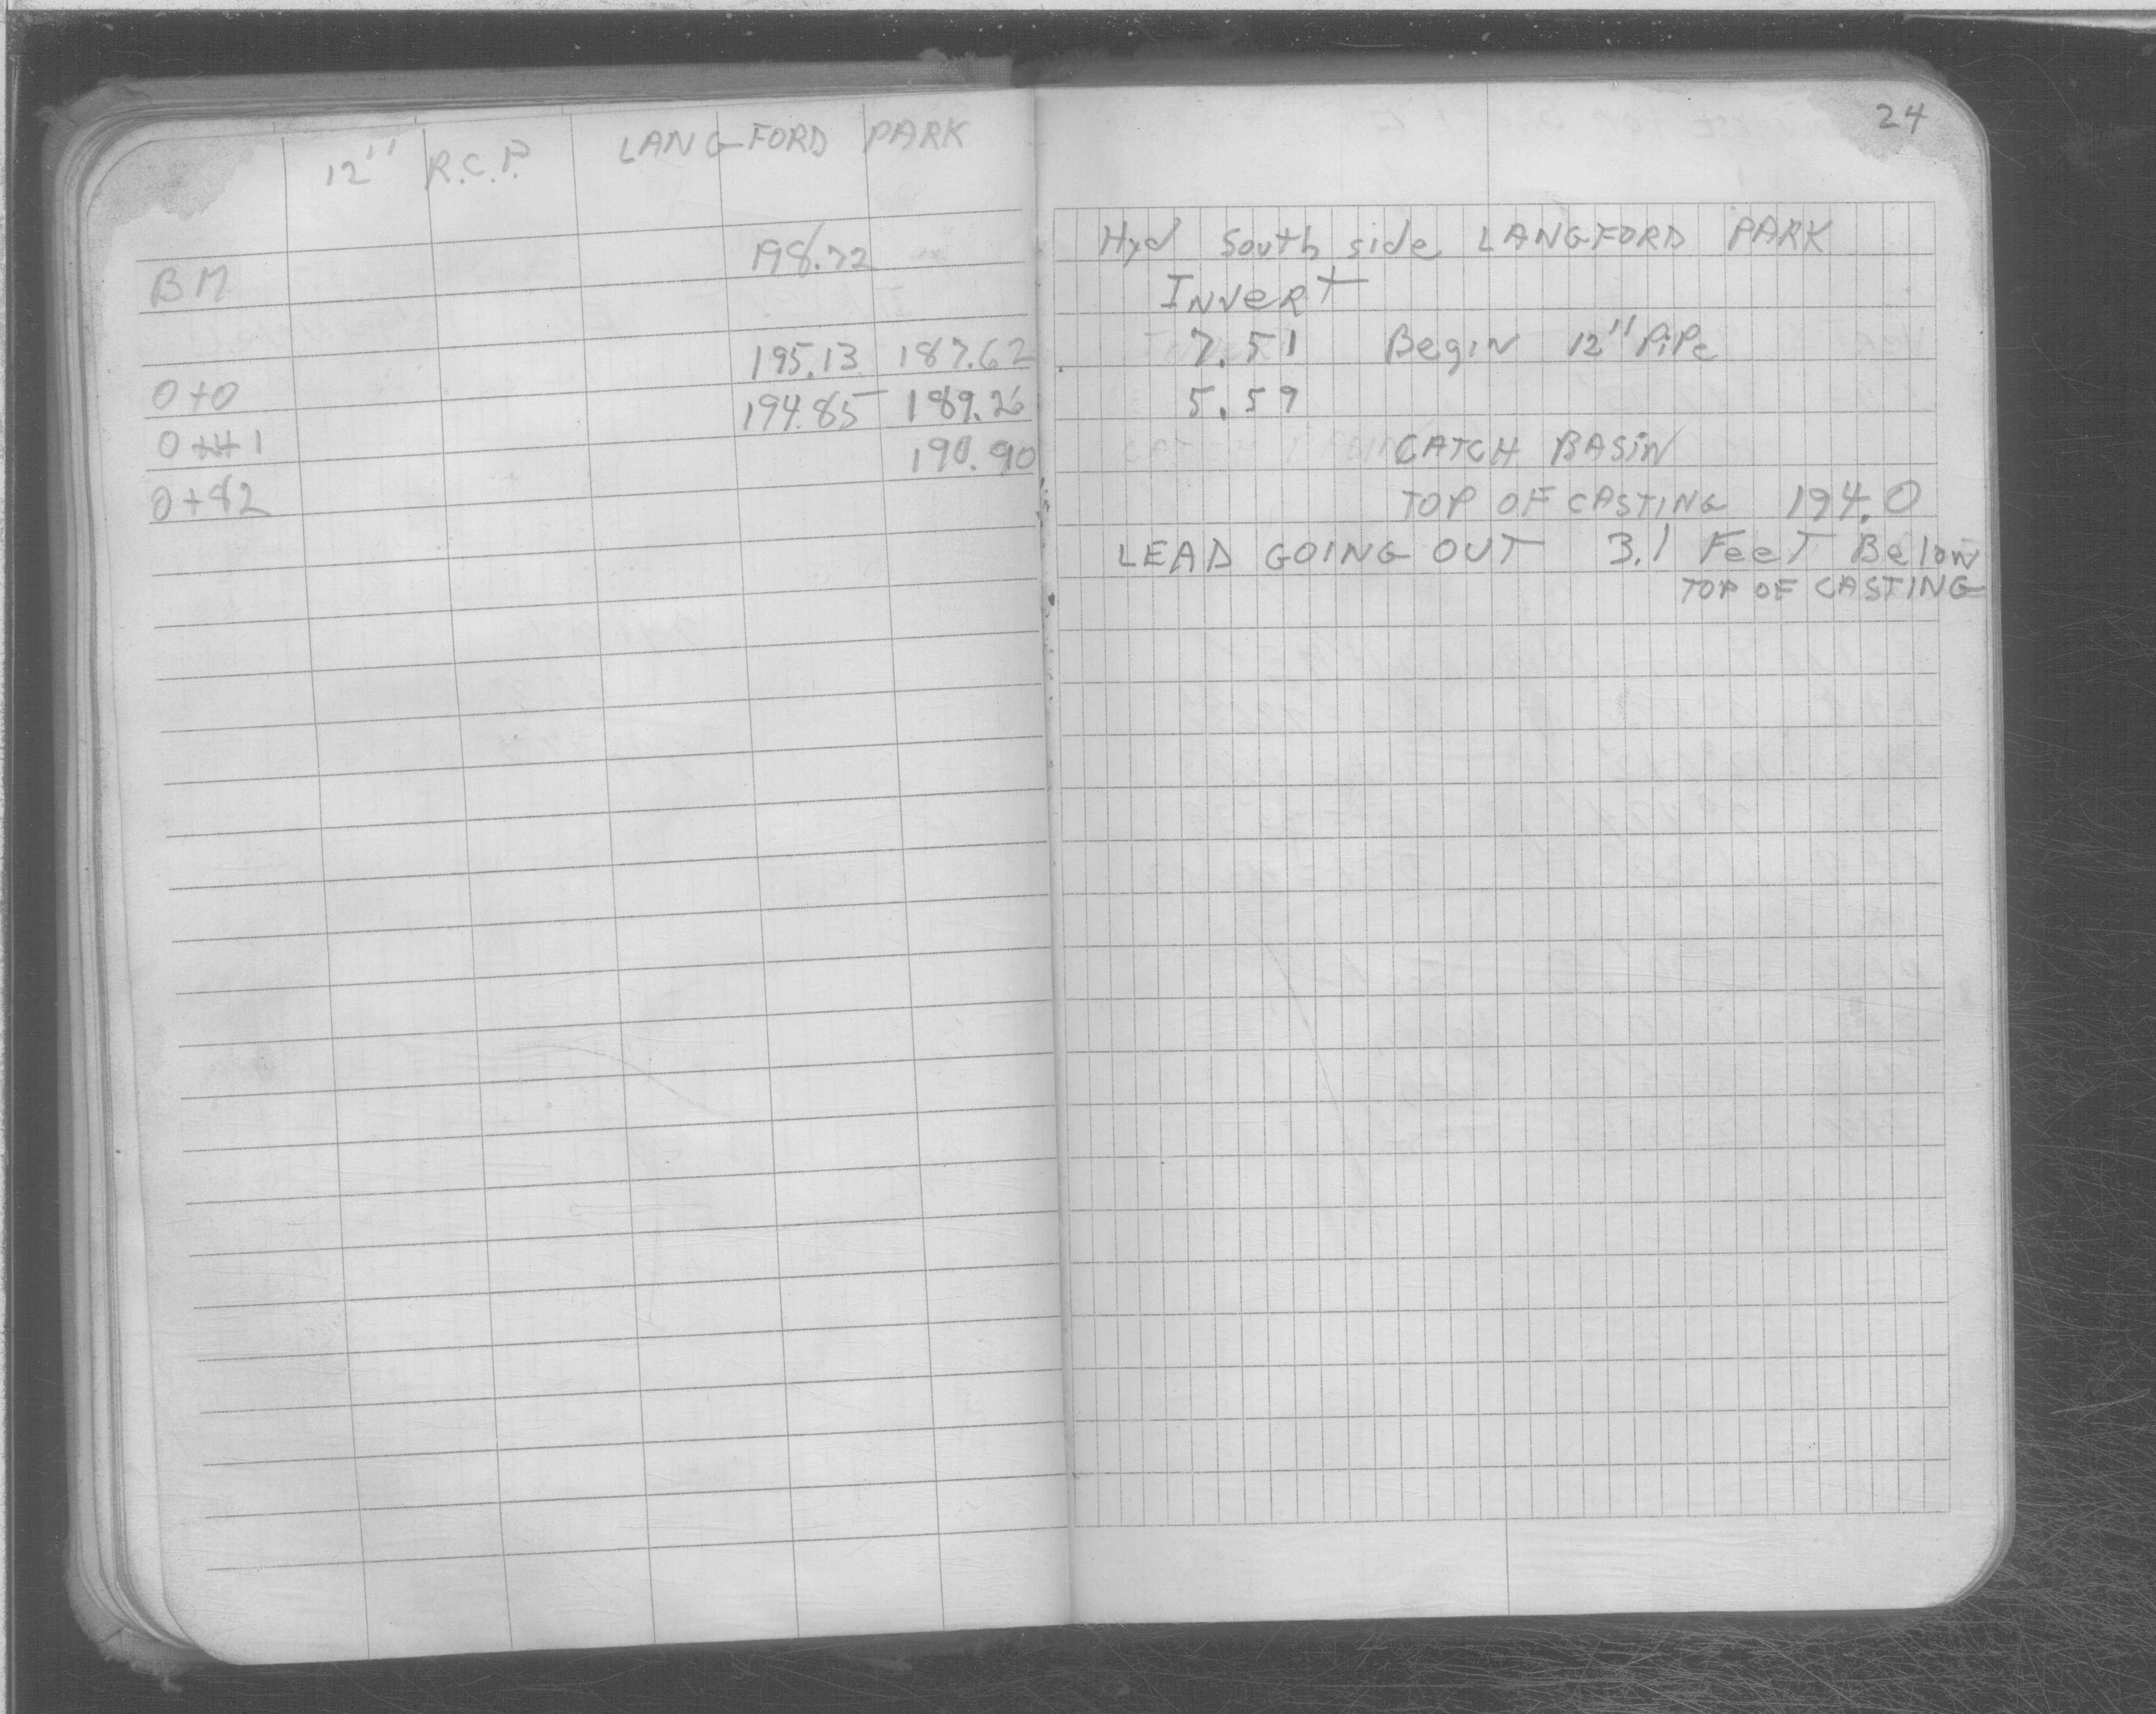 12" R.C.P. LANGFORD PARK
BM 198.72
0+0 195.13 187.62
0+41 194.85 189.26
0+82 190.90
24
Hyd South side LANGFORD PARK
Invert
7.51 Begin 12" Pipe
5.59
CATCH BASIN
TOP OF CASTING 194.0
LEAD GOING OUT 3.1 Feet Below
TOP OF CASTING